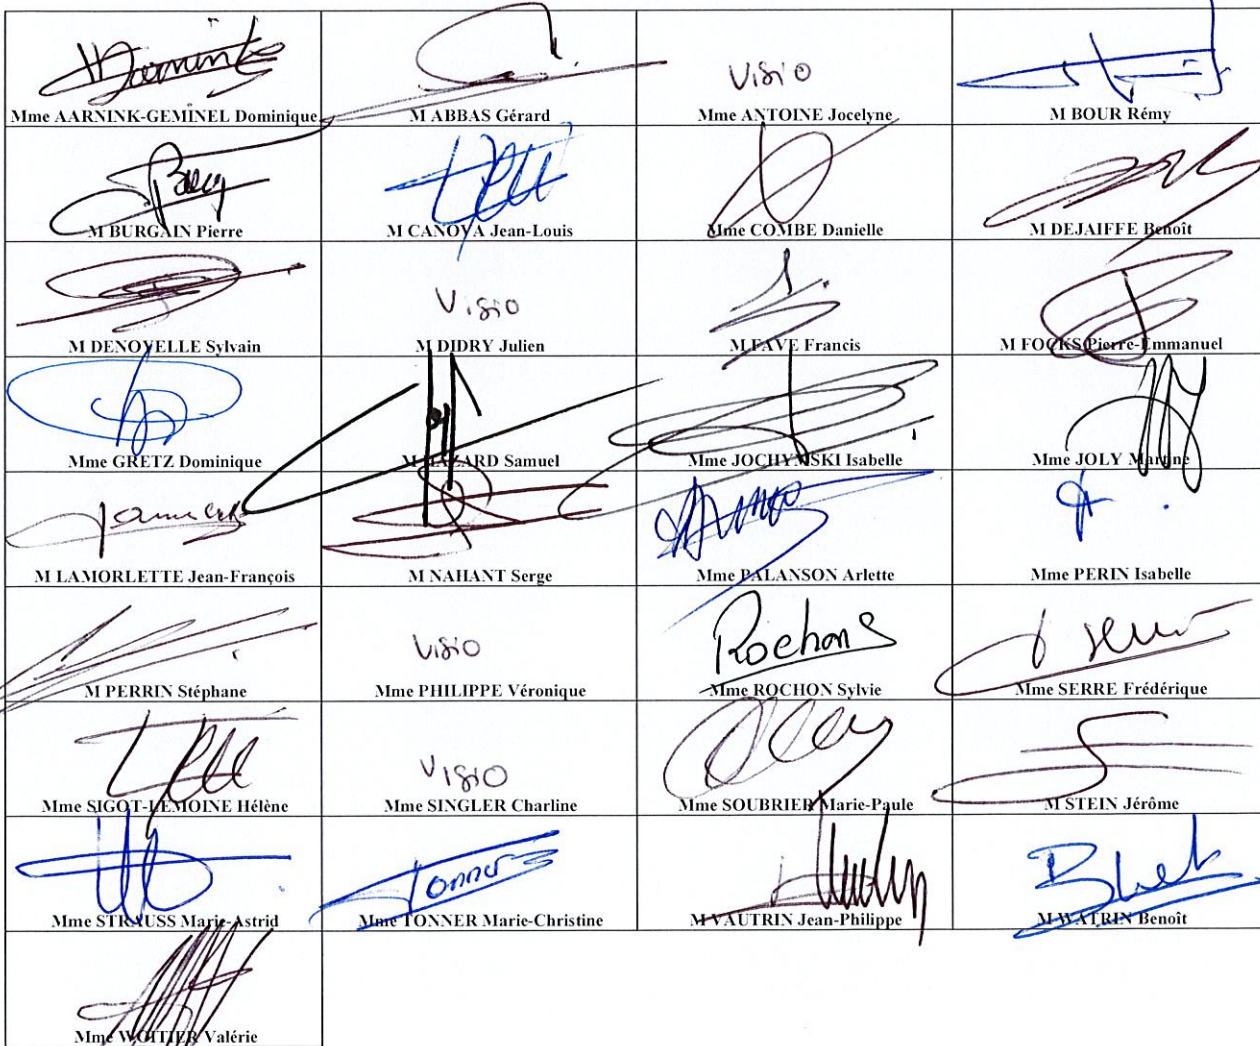 Mme AARNINK-GEMINEL Dominique
M ABBAS Gérard
Visio
Mme ANTOINE Jocelyne
M BOUR Rémy
M BURGAIN Pierre
M CANOVA Jean-Louis
Mme COMBE Danielle
M DEJAIFFE Benoît
M DENOYELLE Sylvain
Visio
M DIDRY Julien
M FAVE Francis
M FOCKS Pierre-Emmanuel
Mme GRETZ Dominique
M HAZARD Samuel
Mme JOCHYMSKI Isabelle
Mme JOLY Martine
M LAMORLETTE Jean-François
M NAHANT Serge
Mme PALANSON Arlette
Mme PERIN Isabelle
M PERRIN Stéphane
Visio
Mme PHILIPPE Véronique
Rochon S
Mme ROCHON Sylvie
Mme SERRE Frédérique
Mme SIGOT-LEMOINE Hélène
Visio
Mme SINGLER Charline
Mme SOUBRIER Marie-Paule
M STEIN Jérôme
Mme STRAUSS Marie-Astrid
Tonner
Mme TONNER Marie-Christine
M VAUTRIN Jean-Philippe
M WATRIN Benoît
Mme WOITIER Valérie